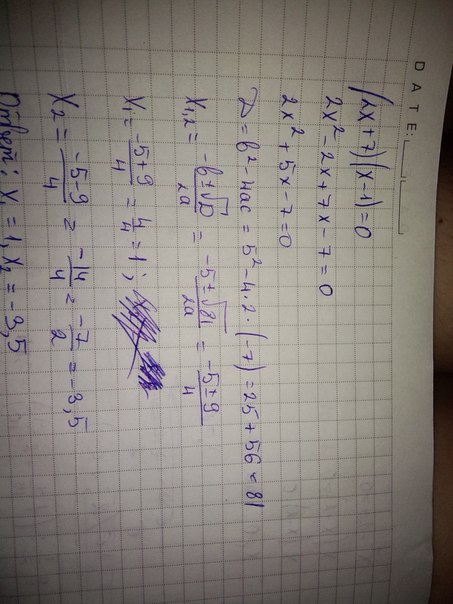 DATE:
(2x+7)(x-1)=0
2x²-2x+7x-7=0
2x²+5x-7=0
D=b²-4ac=5²-4·2·(-7)=25+56=81
x₁,₂=(-b±√D)/2a=(-5±√81)/2a=(-5±9)/4
x₁=(-5+9)/4=4/4=1;
x₂=(-5-9)/4=-14/4=-7/2=-3,5
Ответ: x₁=1, x₂=-3,5